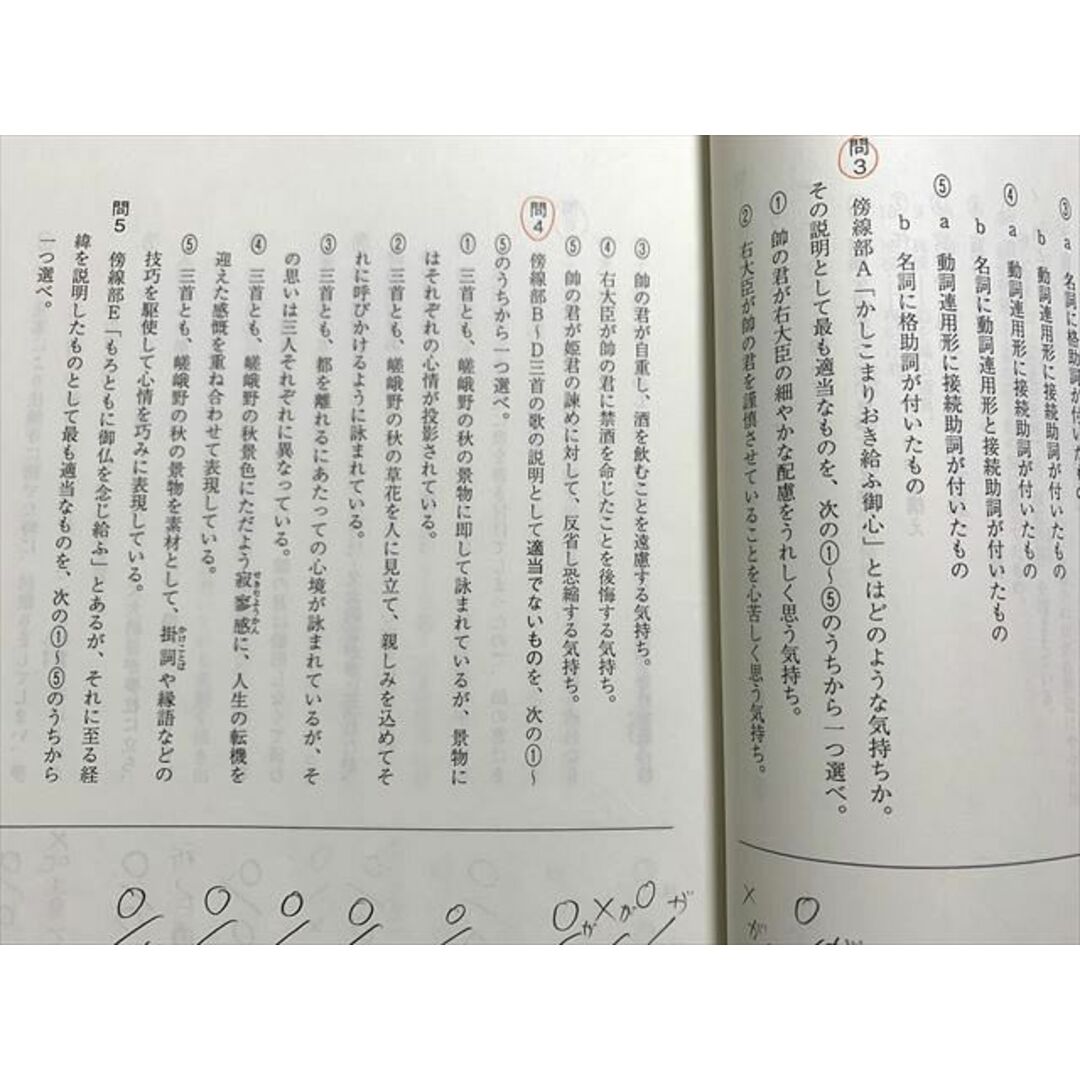 ③ a 名詞に格助詞が付いたもの
b 動詞連用形に接続助詞が付いたもの
④ a 動詞連用形に接続助詞が付いたもの
b 名詞に動詞連用形と接続助詞が付いたもの
⑤ a 動詞連用形に接続助詞が付いたもの
b 名詞に格助詞が付いたもの
問3 傍線部A「かしこまりおき給ふ御心」とはどのような気持ちか。
その説明として最も適当なものを、次の①～⑤のうちから一つ選べ。
① 帥の君が右大臣の細やかな配慮をうれしく思う気持ち。
② 右大臣が帥の君を謹慎させていることを心苦しく思う気持ち。
③ 帥の君が自重し、酒を飲むことを遠慮する気持ち。
④ 右大臣が帥の君に禁酒を命じたことを後悔する気持ち。
⑤ 帥の君が姫君の諫めに対して、反省し恐縮する気持ち。
問4 傍線部B～D三首の歌の説明として適当でないものを、次の①～
⑤のうちから一つ選べ。
① 三首とも、嵯峨野の秋の景物に即して詠まれているが、景物に
はそれぞれの心情が投影されている。
② 三首とも、嵯峨野の秋の草花を人に見立て、親しみを込めてそ
れに呼びかけるように詠まれている。
③ 三首とも、都を離れるにあたっての心境が詠まれているが、そ
の思いは三人それぞれに異なっている。
④ 三首とも、嵯峨野の秋景色にただよう寂寥感に、人生の転機を
せきりょうかん
迎えた感慨を重ね合わせて表現している。
⑤ 三首とも、嵯峨野の秋の景物を素材として、掛詞や縁語などの
かけことば
技巧を駆使して心情を巧みに表現している。
問5 傍線部E「もろともに御仏を念じ給ふ」とあるが、それに至る経
緯を説明したものとして最も適当なものを、次の①～⑤のうちから
一つ選べ。